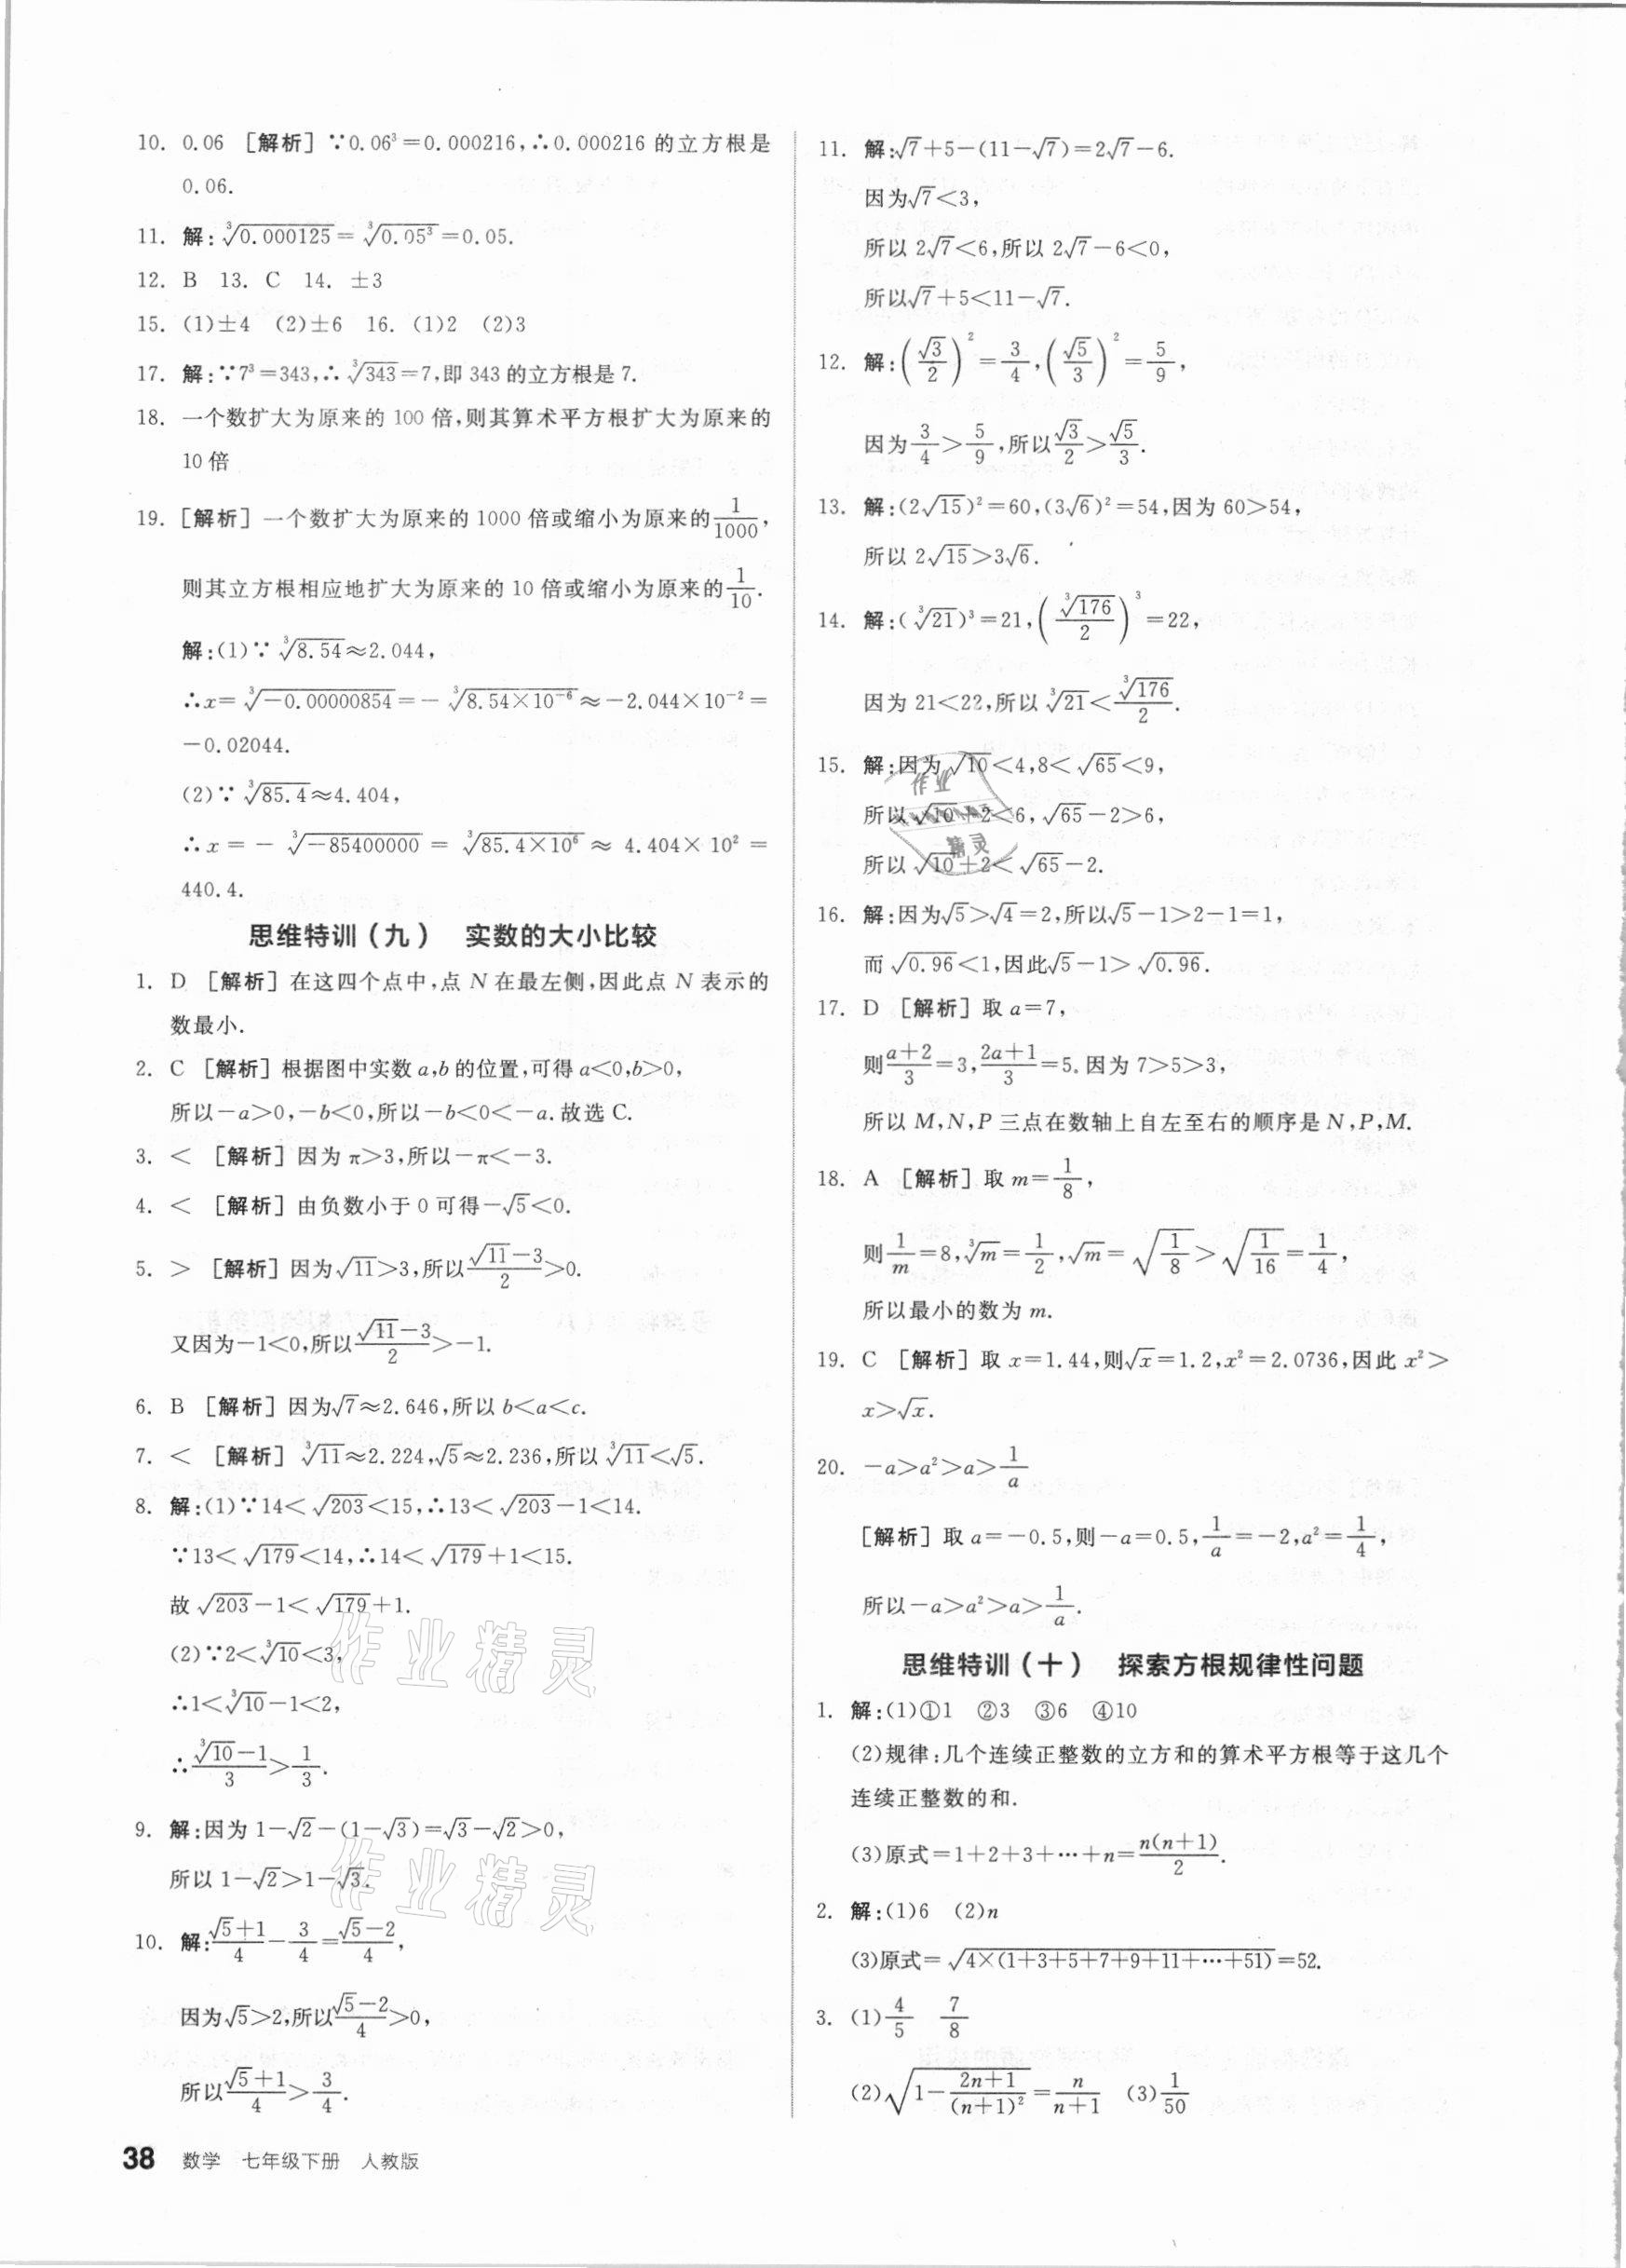 10. 0.06 [解析]∵0.06³=0.000216,∴0.000216 的立方根是
0.06.
11. 解:∛0.000125=∛0.05³=0.05.
12. B 13. C 14. ±3
15. (1)±4 (2)±6 16. (1)2 (2)3
17. 解:∵7³=343,∴∛343=7,即 343 的立方根是 7.
18. 一个数扩大为原来的 100 倍,则其算术平方根扩大为原来的
10 倍
19. [解析]一个数扩大为原来的 1000 倍或缩小为原来的1/1000,
则其立方根相应地扩大为原来的 10 倍或缩小为原来的1/10.
解:(1)∵∛8.54≈2.044,
∴x=∛(-0.00000854)=-∛(8.54×10⁻⁶)≈-2.044×10⁻²=
-0.02044.
(2)∵∛85.4≈4.404,
∴x=-∛(-85400000)=∛(85.4×10⁶)≈4.404×10²=
440.4.
思维特训(九) 实数的大小比较
1. D [解析]在这四个点中,点 N 在最左侧,因此点 N 表示的
数最小.
2. C [解析]根据图中实数 a,b 的位置,可得 a<0,b>0,
所以-a>0,-b<0,所以-b<0<-a.故选 C.
3. < [解析]因为 π>3,所以-π<-3.
4. < [解析]由负数小于 0 可得-√5<0.
5. > [解析]因为√11>3,所以(√11-3)/2>0.
又因为-1<0,所以(√11-3)/2>-1.
6. B [解析]因为√7≈2.646,所以 b<a<c.
7. < [解析]∛11≈2.224,√5≈2.236,所以∛11<√5.
8. 解:(1)∵14<√203<15,∴13<√203-1<14.
∵13<√179<14,∴14<√179+1<15.
故√203-1<√179+1.
(2)∵2<∛10<3,
∴1<∛10-1<2,
∴(∛10-1)/3>1/3.
9. 解:因为 1-√2-(1-√3)=√3-√2>0,
所以 1-√2>1-√3.
10. 解:(√5+1)/4-3/4=(√5-2)/4,
因为√5>2,所以(√5-2)/4>0,
所以(√5+1)/4>3/4.
38 数学 七年级下册 人教版
11. 解:√7+5-(11-√7)=2√7-6.
因为√7<3,
所以 2√7<6,所以 2√7-6<0,
所以√7+5<11-√7.
12. 解:(√3/2)²=3/4,(√5/3)²=5/9,
因为3/4>5/9,所以√3/2>√5/3.
13. 解:(2√15)²=60,(3√6)²=54,因为 60>54,
所以 2√15>3√6.
14. 解:(∛21)³=21,(∛176/2)³=22,
因为 21<22,所以∛21<∛176/2.
15. 解:因为√10<4,8<√65<9,
所以√10+2<6,√65-2>6,
所以√10+2<√65-2.
16. 解:因为√5>√4=2,所以√5-1>2-1=1,
而√0.96<1,因此√5-1>√0.96.
17. D [解析]取 a=7,
则(a+2)/3=3,(2a+1)/3=5.因为 7>5>3,
所以 M,N,P 三点在数轴上自左至右的顺序是 N,P,M.
18. A [解析]取 m=1/8,
则1/m=8,∛m=1/2,√m=√(1/8)>√(1/16)=1/4,
所以最小的数为 m.
19. C [解析]取 x=1.44,则√x=1.2,x²=2.0736,因此 x²>
x>√x.
20. -a>a²>a>1/a
[解析]取 a=-0.5,则-a=0.5,1/a=-2,a²=1/4,
所以-a>a²>a>1/a.
思维特训(十) 探索方根规律性问题
1. 解:(1)①1 ②3 ③6 ④10
(2)规律:几个连续正整数的立方和的算术平方根等于这几个
连续正整数的和.
(3)原式=1+2+3+…+n=n(n+1)/2.
2. 解:(1)6 (2)n
(3)原式=√(4×(1+3+5+7+9+11+…+51))=52.
3. (1)4/5 7/8
(2)√(1-(2n+1)/(n+1)²)=n/(n+1) (3)1/50
作业精灵
作业精灵
作业
精灵